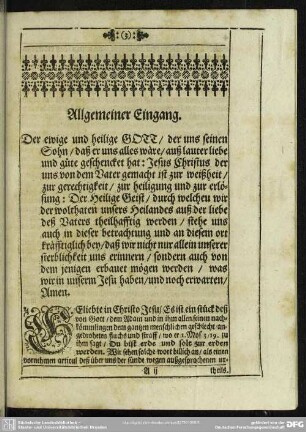 (3)
Allgemeiner Eingang.
Der ewige und heilige GOTT / der uns seinen
Sohn / daß er uns alles wäre / auß lauter liebe
und güte geschencket hat: Jesus Christus der
uns von dem Vater gemacht ist zur weißheit /
zur gerechtigkeit / zur heiligung und zur erlö-
sung: Der Heilige Geist / durch welchen wir
der wolthaten unsers Heilandes auß der liebe
deß Vaters theilhafftig werden / stehe uns
auch in dieser betrachtung und an diesem ort
kräfftiglich bey / daß wir nicht nur allein unserer
sterblichkeit uns erinnern / sondern auch von
dem jenigen erbauet mögen werden / was
wir in unserm Jesu haben / und noch erwarten /
Amen.
Geliebte in Christo Jesu / Es ist ein stück deß
von Gott / dem Adam und in ihm allen seinen nach-
kömmlingen dem gantzen menschlichem geschlecht an-
gedreheten fluchs und straff / wo er 1. Mos. 3/19. zu
ihm sagt / Du bist erde und solt zur erden
werden. Wir sehen solche wort billich an / als einen
vornehmen articul deß über uns der sünde wegen außgesprochenen ur-
A ij
theils.